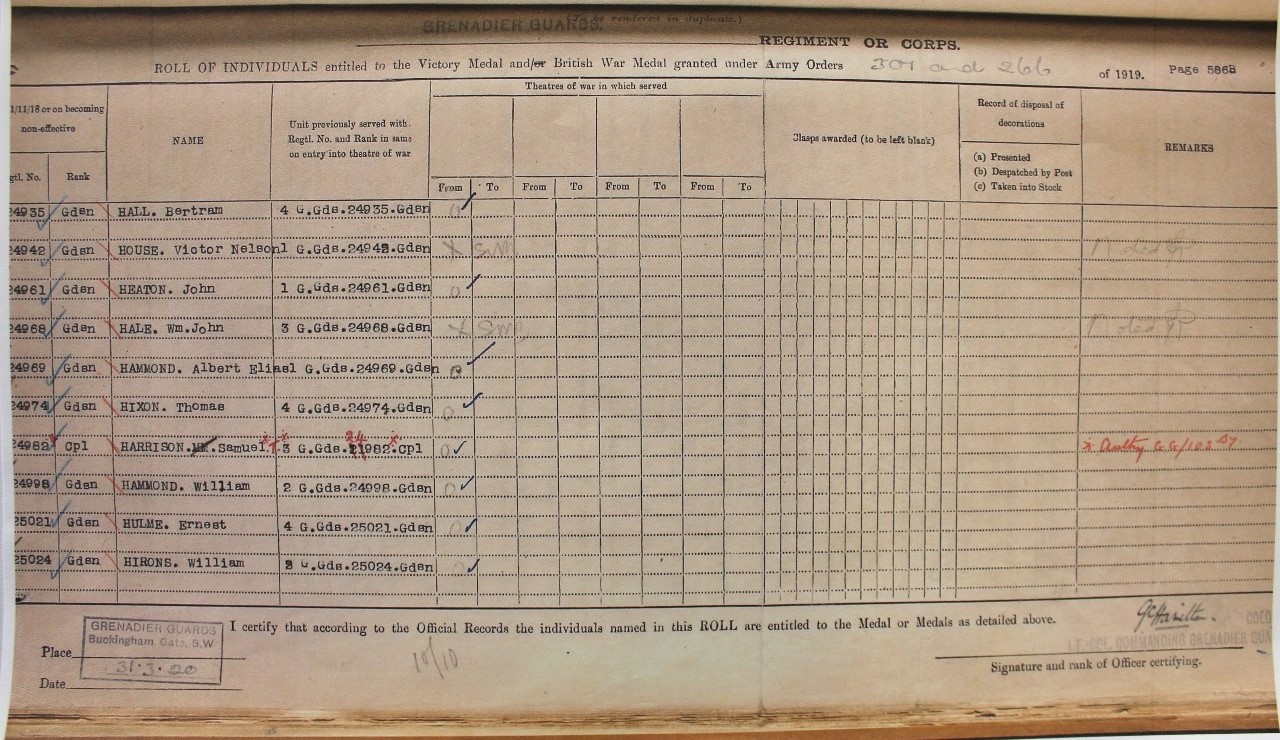 GRENADIER GUARDS.
(To be rendered in duplicate.)
REGIMENT OR CORPS.
ROLL OF INDIVIDUALS entitled to the Victory Medal and/or British War Medal granted under Army Orders 301 and 266 of 1919. Page 586B
1/11/18 or on becoming non-effective
gtl. No. Rank
NAME
Unit previously served with.
Regtl. No. and Rank in same
on entry into theatre of war
Theatres of war in which served
From To From To From To From To
Clasps awarded (to be left blank)
Record of disposal of
decorations
(a) Presented
(b) Despatched by Post
(c) Taken into Stock
REMARKS
24935 Gdsn HALL. Bertram 4 G.Gds.24935.Gdsn
24942 Gdsn HOUSE. Victor Nelson 1 G.Gds.24942.Gdsn X Noted
24961 Gdsn HEATON. John 1 G.Gds.24961.Gdsn
24968 Gdsn HALE. Wm.John 3 G.Gds.24968.Gdsn X Noted
24969 Gdsn HAMMOND. Albert Elias 1 G.Gds.24969.Gdsn
24974 Gdsn HIXON. Thomas 4 G.Gds.24974.Gdsn
24982 Cpl HARRISON. Samuel. 3 G.Gds.24982.Cpl
24998 Gdsn HAMMOND. William 2 G.Gds.24998.Gdsn
25021 Gdsn HULME. Ernest 4 G.Gds.25021.Gdsn
25024 Gdsn HIRONS. William 2 G.Gds.25024.Gdsn
I certify that according to the Official Records the individuals named in this ROLL are entitled to the Medal or Medals as detailed above.
GRENADIER GUARDS
Buckingham Gate, S.W
31.3.20
Place
Date
10/10
LT.-COL. COMMANDING GRENADIER GUA
Signature and rank of Officer certifying.